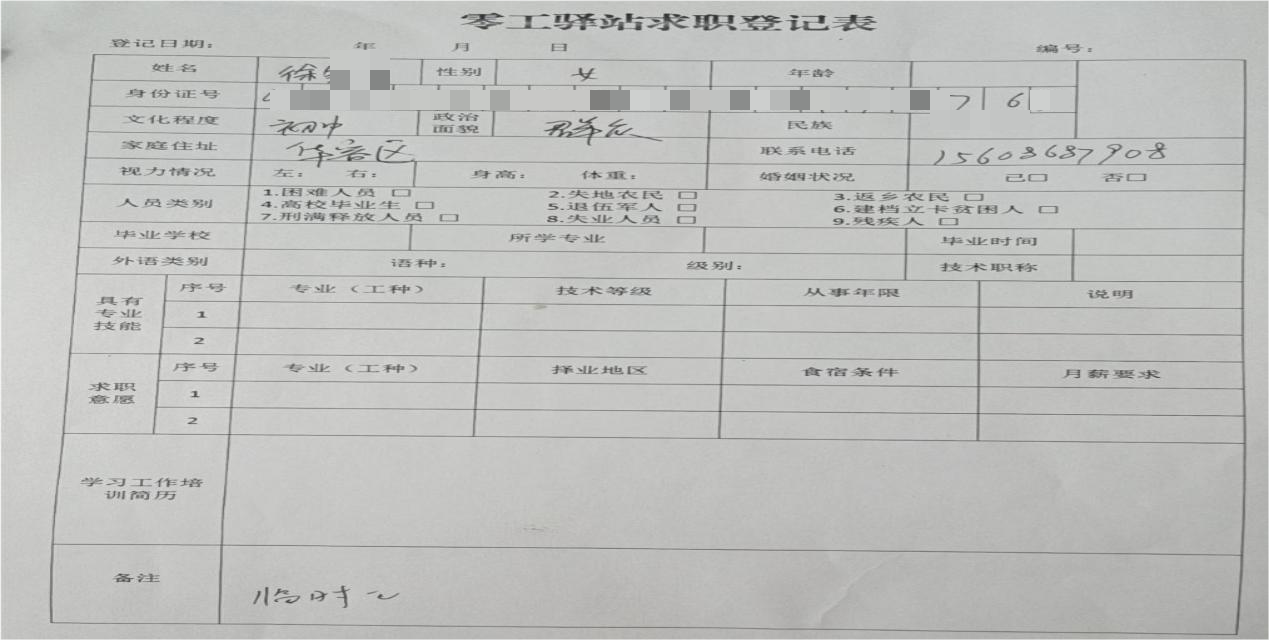 零工驿站求职登记表
登记日期: 年 月 日 编号:
姓名 徐 性别 女 年龄
身份证号 7 1 6
文化程度 初中 政治面貌 群众 民族
家庭住址 华容区 联系电话 15608687908
视力情况 左: 右: 身高: 体重: 婚姻状况 已口 否口
人员类别 1.困难人员 口 2.失地农民 口 3.返乡农民 口
4.高校毕业生 口 5.退伍军人 口 6.建档立卡贫困人 口
7.刑满释放人员 口 8.失业人员 口 9.残疾人 口
毕业学校 所学专业 毕业时间
外语类别 语种: 级别: 技术职称
具有专业技能 序号 专业（工种） 技术等级 从事年限 说明
1
2
求职意愿 序号 专业（工种） 择业地区 食宿条件 月薪要求
1
2
学习工作培训简历
备注 临时工